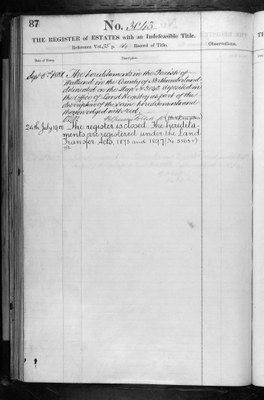 87
No. 3043
THE REGISTER of ESTATES with an Indefeasible Title.
Reference Vol. p. Record of Title.
Date of Entry.
Description.
Observations.
The Hereditaments in the Parish of
in the County of
delineated on the Map No 3043 deposited in
the Office of Land Registry as part of the
description of the said Hereditaments and
thereon edged with red.
24th July
The register is closed. The heredita-
ments are registered under the Land
Transfer Acts, 1875 and 1897